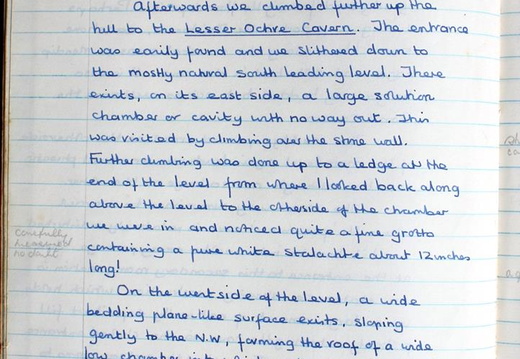 Afterwards we climbed further up the
hill to the Lesser Ochre Cavern. The entrance
was easily found and we slithered down to
the mostly natural south leading level. There
exists, on its east side, a large solution
chamber or cavity with no way out. This
was visited by climbing over the stone wall.
Further climbing was done up to a ledge at the
end of the level from where I looked back along
above the level to the otherside of the chamber
we were in and noticed quite a fine grotto
carefully
measured
no doubt
containing a pure white stalactite about 12 inches
long!
On the west side of the level, a wide
bedding plane-like surface exists, sloping
gently to the N.W, forming the roof of a wide
low chamber